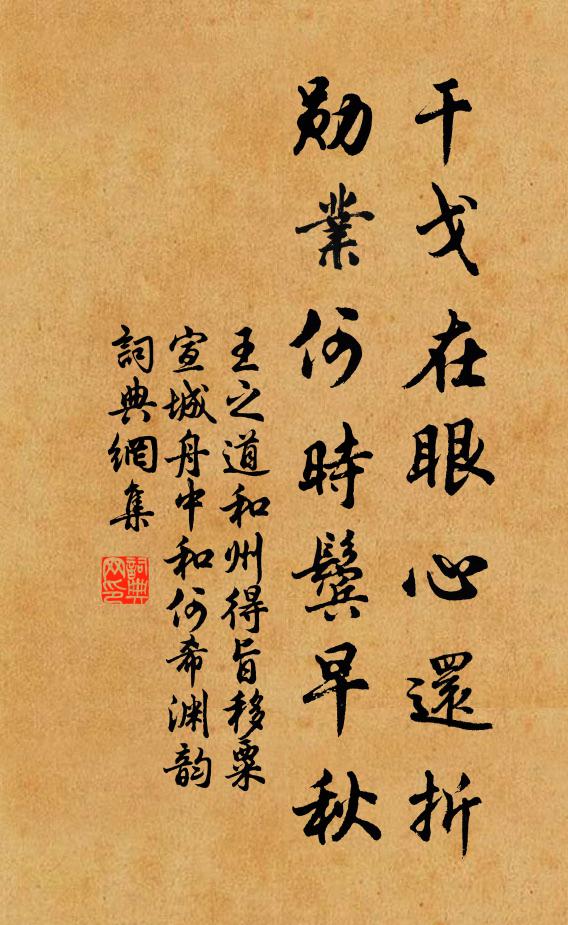 干戈在眼心還折
勛業何時鬢早秋
王之道和州得旨移粟
宣城舟中和何希渊韵
詞典網集
詞典网印